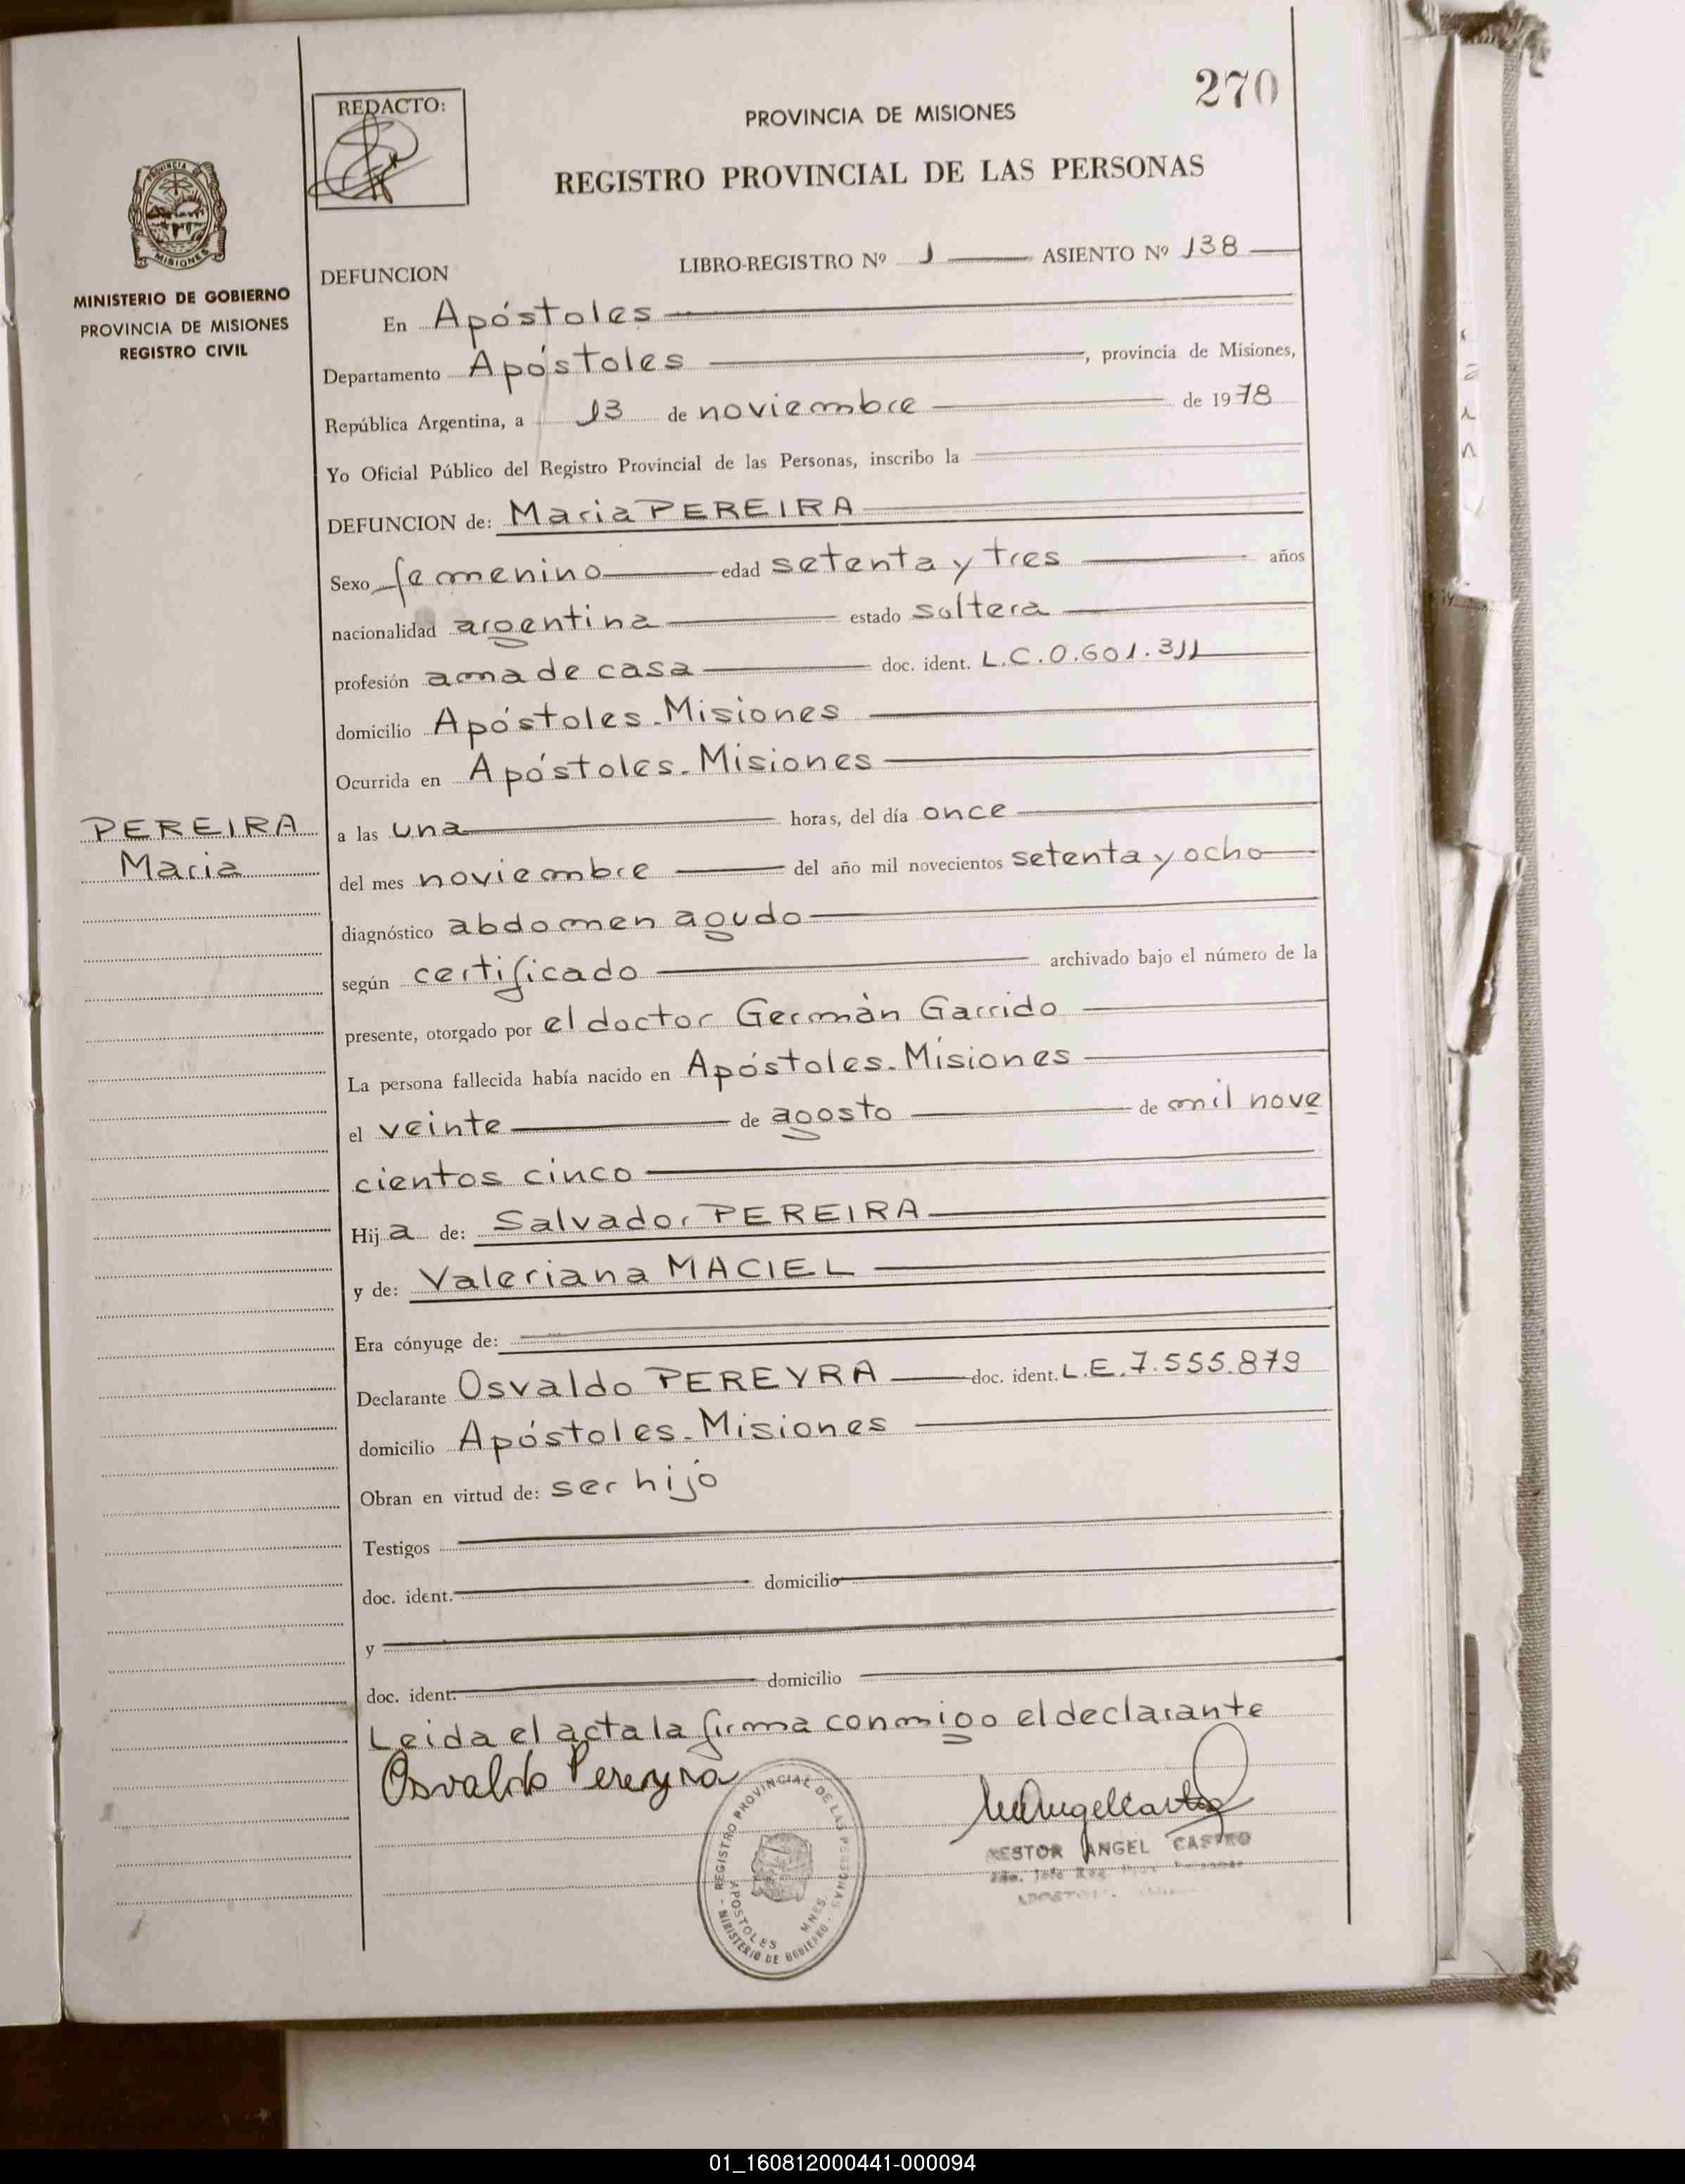 270
REDACTO:
PROVINCIA DE MISIONES
REGISTRO PROVINCIAL DE LAS PERSONAS
PROVINCIA DE
MISIONES
MINISTERIO DE GOBIERNO
PROVINCIA DE MISIONES
REGISTRO CIVIL
DEFUNCION LIBRO-REGISTRO Nº 1 ASIENTO Nº 138
En Apóstoles
Departamento Apóstoles, provincia de Misiones,
República Argentina, a 13 de noviembre de 1978
Yo Oficial Público del Registro Provincial de las Personas, inscribo la
DEFUNCION de: Maria PEREIRA
Sexo femenino edad setenta y tres años
nacionalidad argentina estado soltera
profesión ama de casa doc. ident. L.C.0.601.311
domicilio Apóstoles-Misiones
Ocurrida en Apóstoles-Misiones
PEREIRA
Maria
a las una horas, del día once
del mes noviembre del año mil novecientos setenta y ocho
diagnóstico abdomen agudo
según certificado archivado bajo el número de la
presente, otorgado por el doctor Germàn Garrido
La persona fallecida había nacido en Apóstoles-Misiones
el veinte de agosto de mil nove
cientos cinco
Hija de: Salvador PEREIRA
y de: Valeriana MACIEL
Era cónyuge de:
Declarante Osvaldo PEREYRA doc. ident. L.E.7.555.879
domicilio Apóstoles-Misiones
Obran en virtud de: ser hijo
Testigos
doc. ident. domicilio
y
doc. ident. domicilio
Leida el acta la firma conmigo el declarante
Osvaldo Pereyra
REGISTRO PROVINCIAL DE LAS PERSONAS
APOSTOLES MNES.
MINISTERIO DE GOBIERNO
NESTOR ANGEL CASTRO
01_160812000441-000094